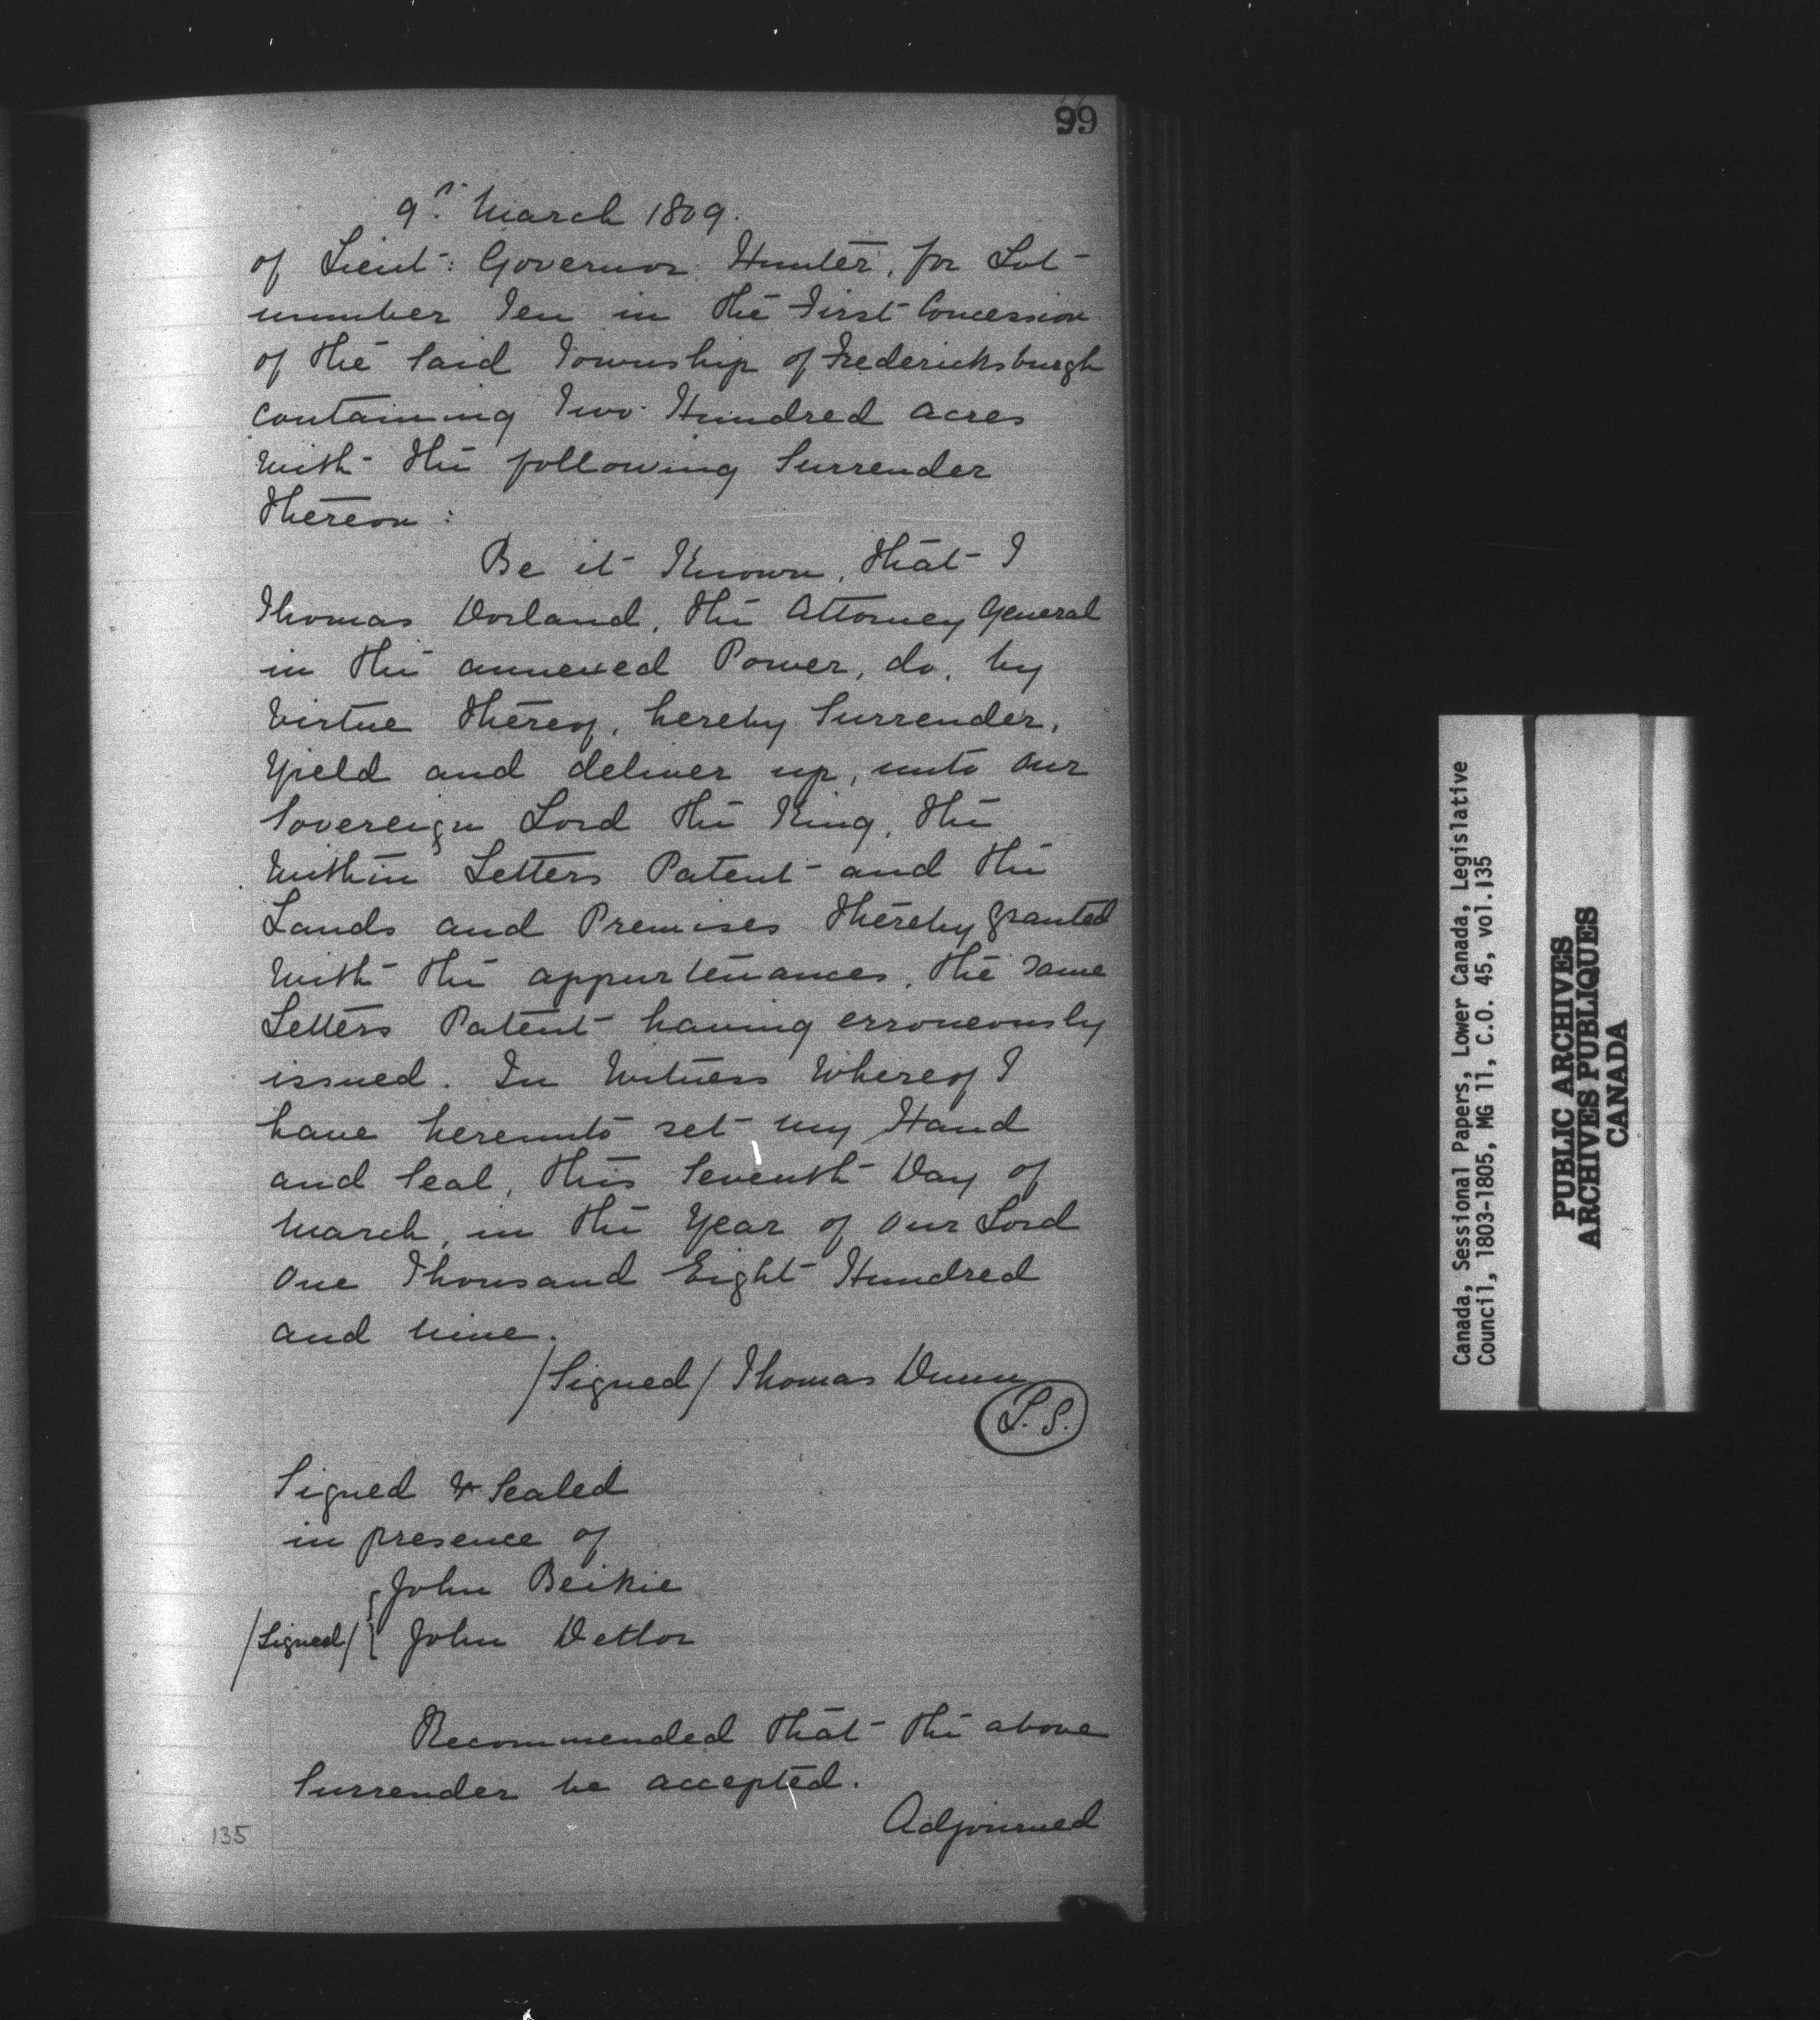 99
9th March 1809.
of Lieut: Governor Hunter, for Lot
number Ten in the First Concession
of the said Township of Fredericksburgh
containing Two Hundred acres
with the following Surrender
thereon:
Be it Known, that I
Thomas Dorland, the Attorney General
in the annexed Power, do, by
Virtue thereof, hereby Surrender,
Yield and deliver up, unto our
Sovereign Lord the King, the
within Letters Patent and the
Lands and Premises thereby granted
with the appurtenances, the same
Letters Patent having erroneously
issued. In Witness Whereof I
have hereunto set my Hand
and Seal, this Seventh Day of
March, in the Year of Our Lord
One Thousand Eight Hundred
and nine.
/Signed/ Thomas Dunn
L.S.
Signed & Sealed
in presence of
John Beikie
/Signed/ John Detlor
Recommended that the above
Surrender be accepted.
Adjourned
135
Canada, Sessional Papers, Lower Canada, Legislative
Council, 1803-1805, MG 11, C.O. 45, vol.135
PUBLIC ARCHIVES
ARCHIVES PUBLIQUES
CANADA